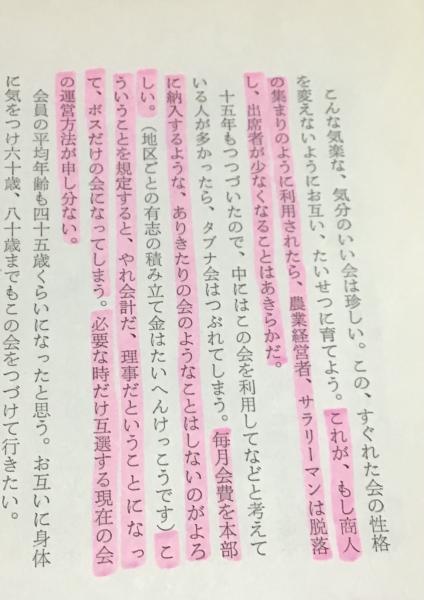 こんな気楽な、気分のいい会は珍しい。この、すぐれた会の性格
を変えないようにお互い、たいせつに育てよう。これが、もし商人
の集まりのように利用されたら、農業経営者、サラリーマンは脱落
し、出席者が少なくなることはあきらかだ。
十五年もつつづいたので、中にはこの会を利用してなどと考えて
いる人が多かったら、タブナ会はつぶれてしまう。毎月会費を本部
に納入するような、ありきたりの会のようなことはしないのがよろ
しい。(地区ごとの有志の積み立て金はたいへんけっこうです)こ
ういうことを規定すると、やれ会計だ、理事だということになっ
て、ボスだけの会になってしまう。必要な時だけ互選する現在の会
の運営方法が申し分ない。
会員の平均年齢も四十五歳くらいになったと思う。お互いに身体
に気をつけ六十歳、八十歳までもこの会をつづけて行きたい。